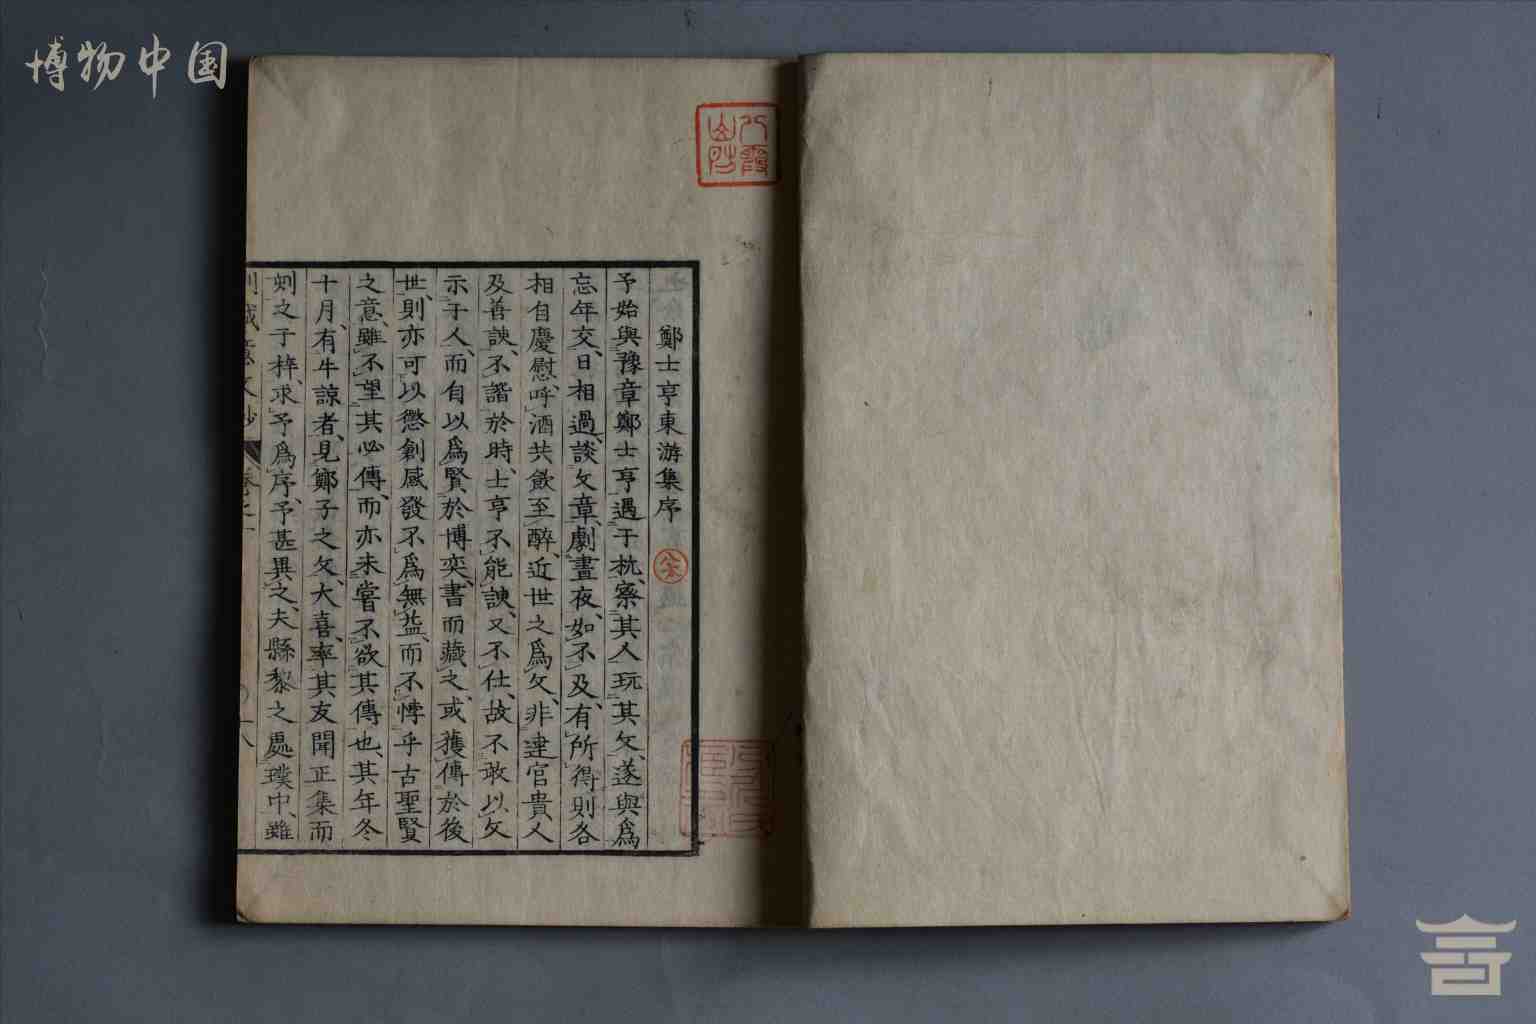 博物中国
鄭士亨東游集序
予始與豫章鄭士亨遇于杭察其人玩其文遂與爲
忘年交日相過談文章劇晝夜如不及有所得則各
相自慶慰呼酒共飲至醉近世之爲文非達官貴人
及善諛不諧於時士亨不能諛又不仕故不敢以文
示于人而自以爲賢於博奕書而藏之或獲傳於後
世則亦可以懲創感發不爲無益而不悖乎古聖賢
之意雖不望其必傳而亦未嘗不欲其傳也其年冬
十月有牛諒者見鄭子之文大喜率其友聞正集而
刻之于梓求予爲序予甚異之夫縣黎之處璞中雖